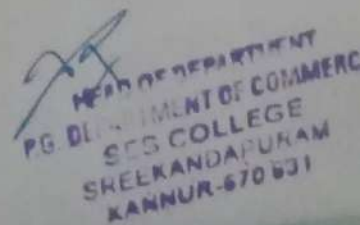 HEAD OF DEPARTMENT
P.G. DEPARTMENT OF COMMERC
SES COLLEGE
SREEKANDAPURAM
KANNUR-670 631